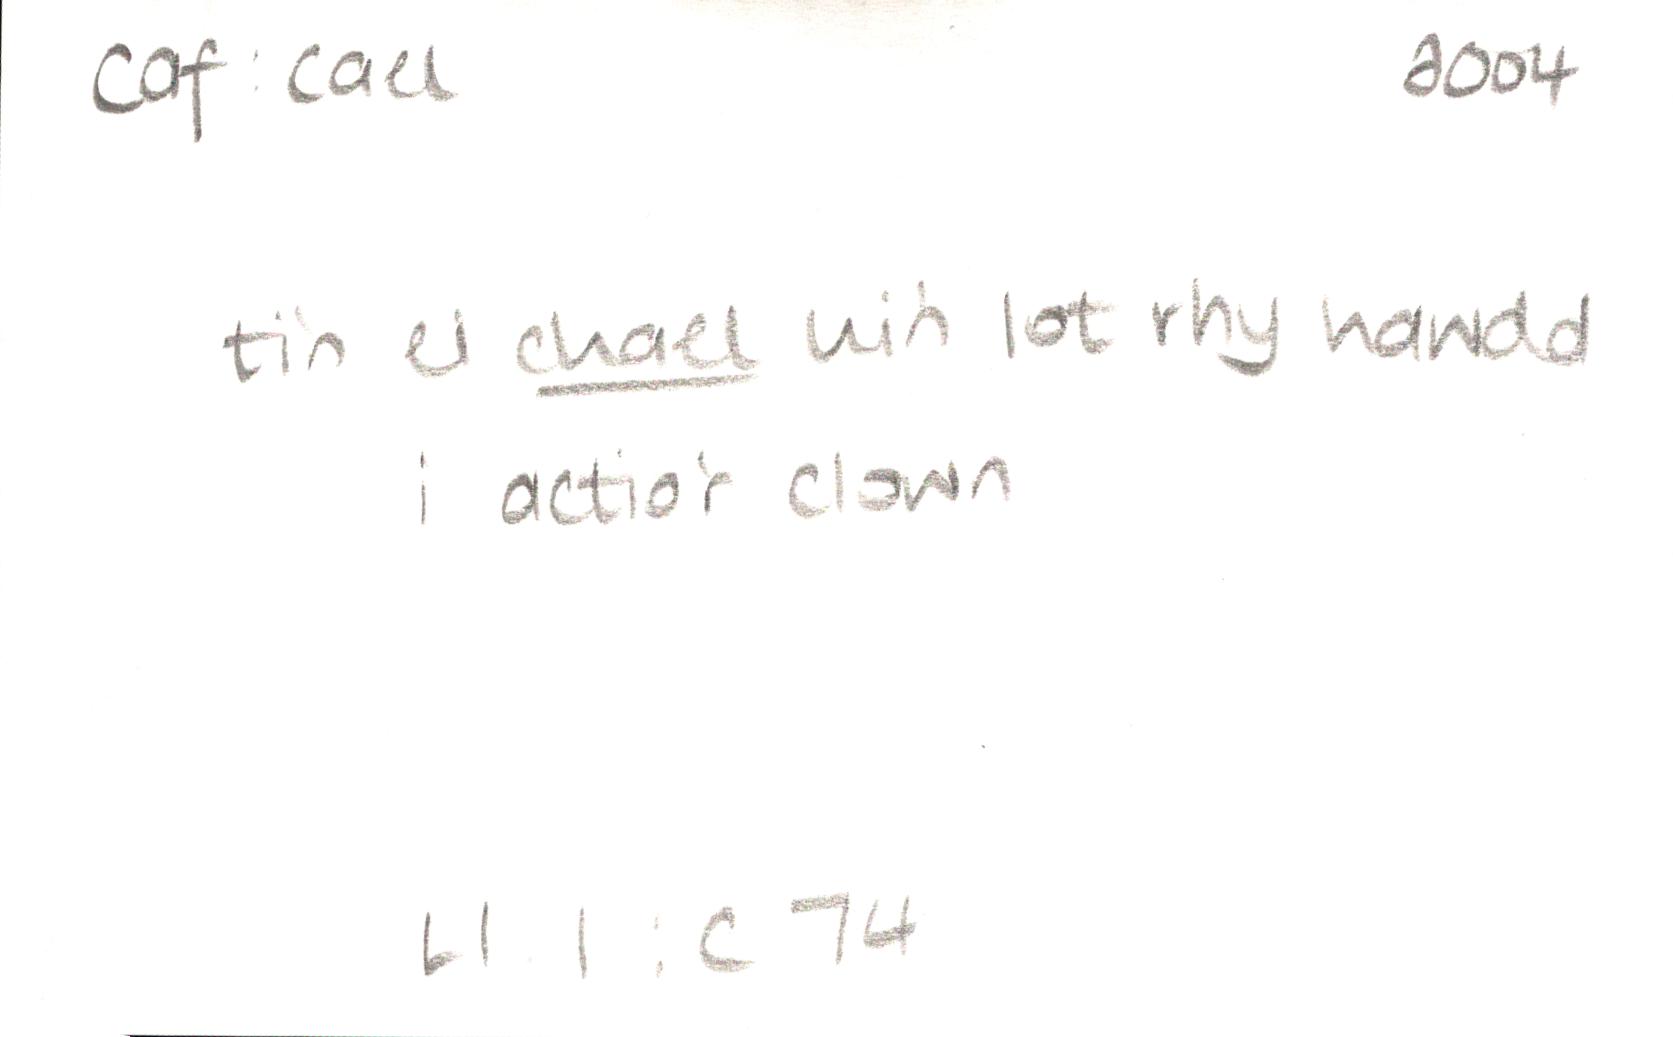 caf : cael 2004
ti'n ei chael hi'n lot rhy hawdd
i actio'r clown
Ll 1 : C 74